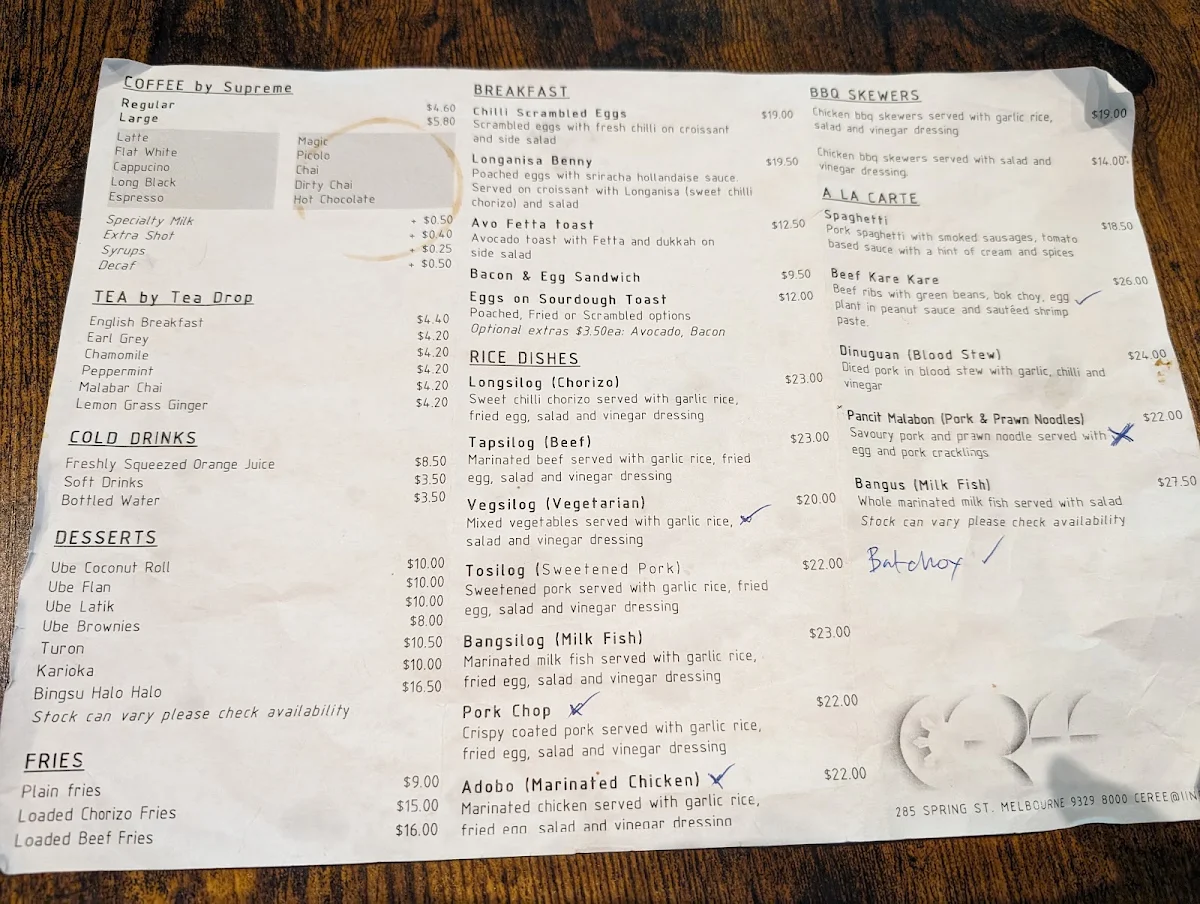 COFFEE by Supreme
Regular $4.60
Large $5.80
Latte
Flat White
Cappucino
Long Black
Espresso
Magic
Picolo
Chai
Dirty Chai
Hot Chocolate
Specialty Milk + $0.50
Extra Shot + $0.40
Syrups + $0.25
Decaf + $0.50
TEA by Tea Drop
English Breakfast $4.40
Earl Grey $4.20
Chamomile $4.20
Peppermint $4.20
Malabar Chai $4.20
Lemon Grass Ginger $4.20
COLD DRINKS
Freshly Squeezed Orange Juice $8.50
Soft Drinks $3.50
Bottled Water $3.50
DESSERTS
Ube Coconut Roll $10.00
Ube Flan $10.00
Ube Latik $10.00
Ube Brownies $8.00
Turon $10.50
Karioka $10.00
Bingsu Halo Halo $16.50
Stock can vary please check availability
FRIES
Plain fries $9.00
Loaded Chorizo Fries $15.00
Loaded Beef Fries $16.00
BREAKFAST
Chilli Scrambled Eggs $19.00
Scrambled eggs with fresh chilli on croissant
and side salad
Longanisa Benny $19.50
Poached eggs with sriracha hollandaise sauce.
Served on croissant with Longanisa (sweet chilli
chorizo) and salad
Avo Fetta toast $12.50
Avocado toast with Fetta and dukkah on
side salad
Bacon & Egg Sandwich $9.50
Eggs on Sourdough Toast $12.00
Poached, Fried or Scrambled options
Optional extras $3.50ea: Avocado, Bacon
RICE DISHES
Longsilog (Chorizo) $23.00
Sweet chilli chorizo served with garlic rice,
fried egg, salad and vinegar dressing
Tapsilog (Beef) $23.00
Marinated beef served with garlic rice, fried
egg, salad and vinegar dressing
Vegsilog (Vegetarian) $20.00
Mixed vegetables served with garlic rice,
salad and vinegar dressing
Tosilog (Sweetened Pork) $22.00
Sweetened pork served with garlic rice, fried
egg, salad and vinegar dressing
Bangsilog (Milk Fish) $23.00
Marinated milk fish served with garlic rice,
fried egg, salad and vinegar dressing
Pork Chop $22.00
Crispy coated pork served with garlic rice,
fried egg, salad and vinegar dressing
Adobo (Marinated Chicken) $22.00
Marinated chicken served with garlic rice,
fried egg, salad and vinegar dressing
BBQ SKEWERS
Chicken bbq skewers served with garlic rice, $19.00
salad and vinegar dressing
Chicken bbq skewers served with salad and $14.00
vinegar dressing.
A LA CARTE
Spaghetti $18.50
Pork spaghetti with smoked sausages, tomato
based sauce with a hint of cream and spices
Beef Kare Kare $26.00
Beef ribs with green beans, bok choy, egg
plant in peanut sauce and sautéed shrimp
paste.
Dinuguan (Blood Stew) $24.00
Diced pork in blood stew with garlic, chilli and
vinegar
Pancit Malabon (Pork & Prawn Noodles) $22.00
Savoury pork and prawn noodle served with
egg and pork cracklings
Bangus (Milk Fish) $27.50
Whole marinated milk fish served with salad
Stock can vary please check availability
Batchoy
285 SPRING ST. MELBOURNE 9329 8000 CEREE@IIN